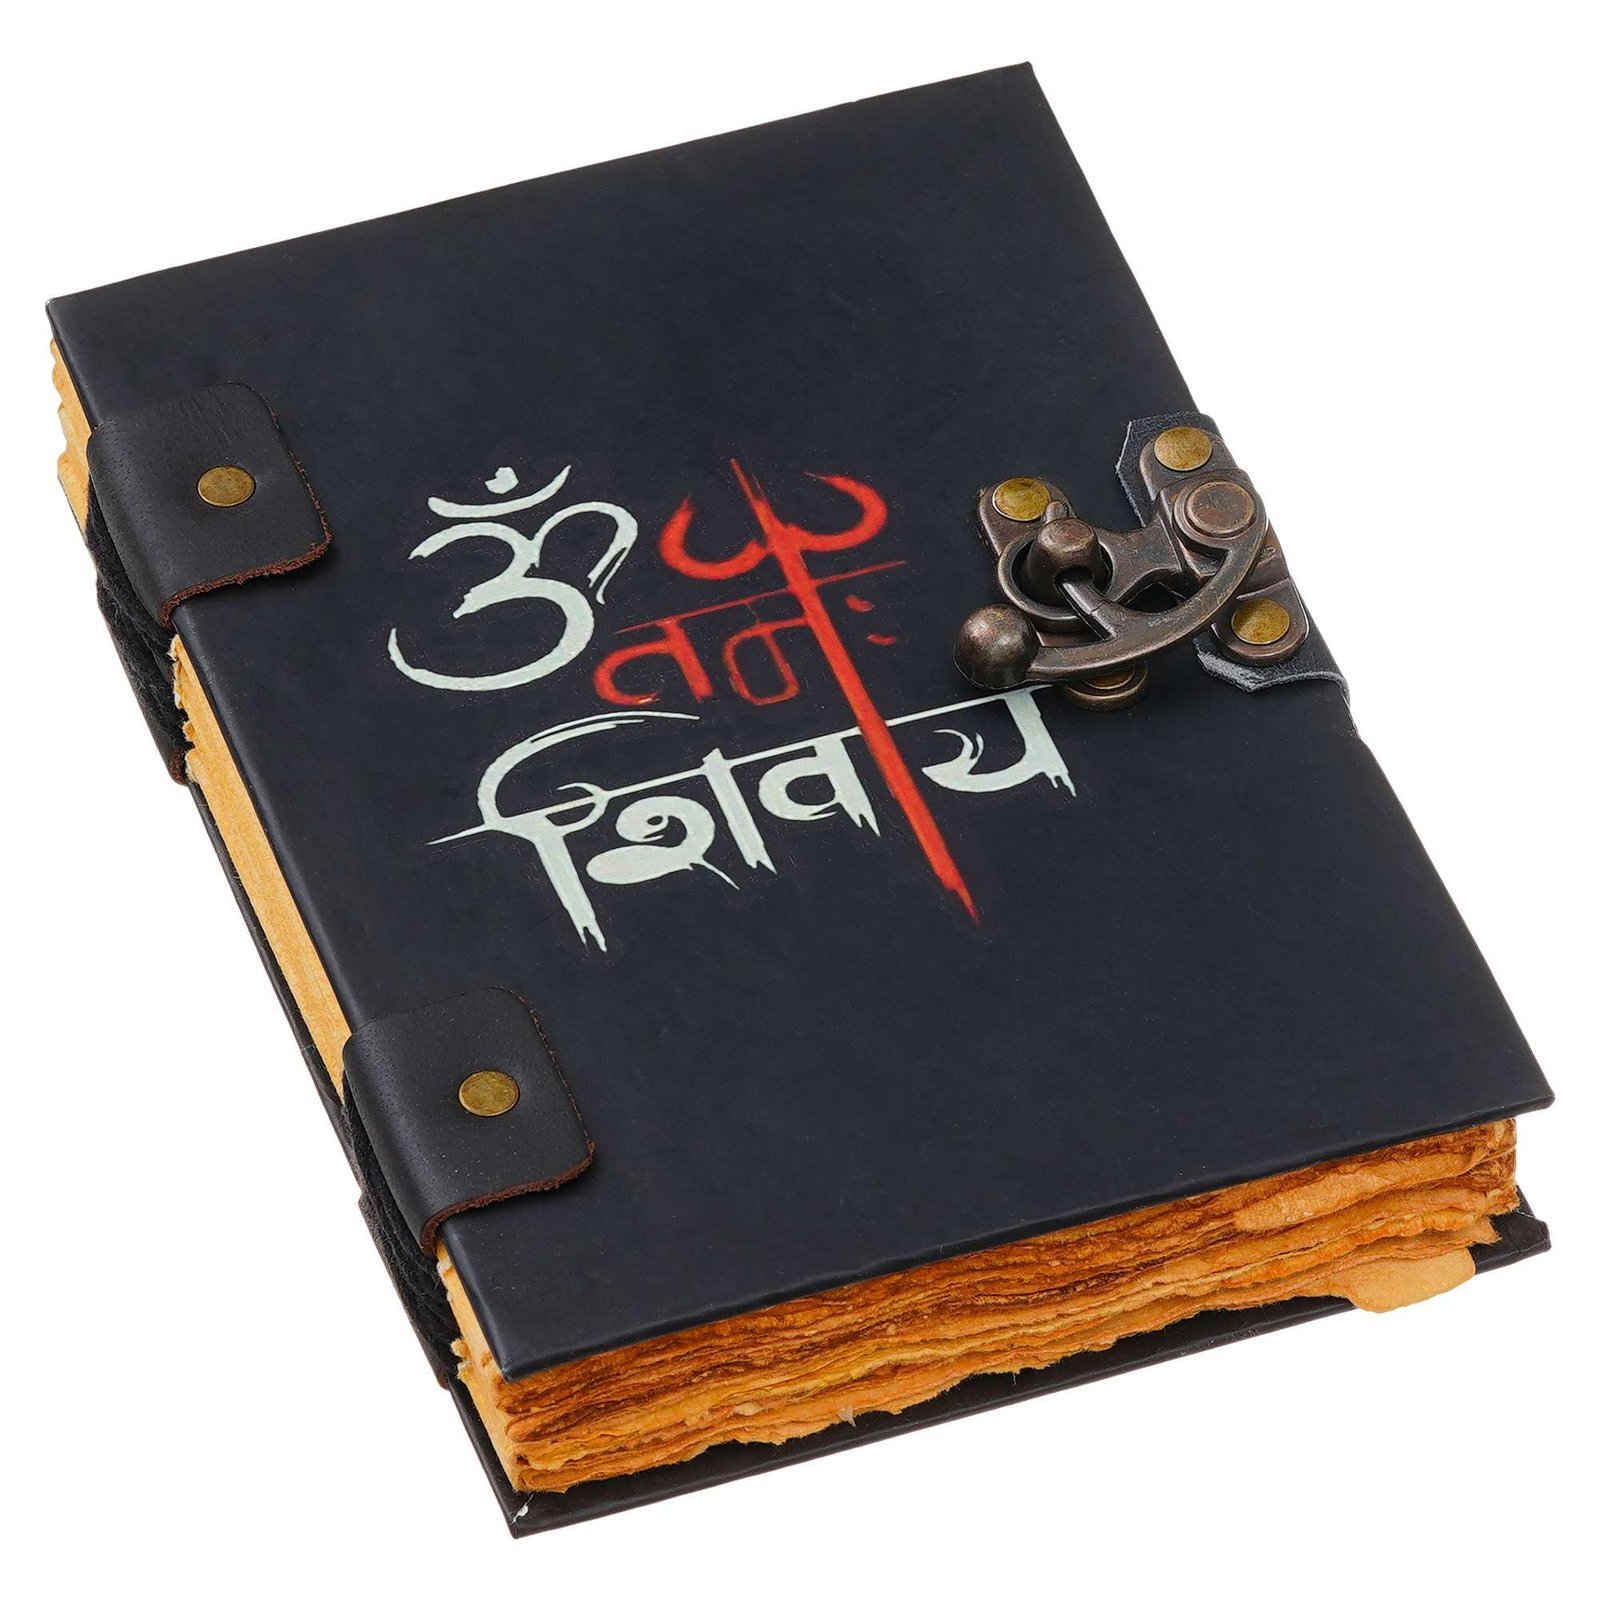 ॐ नमः
शिवाय